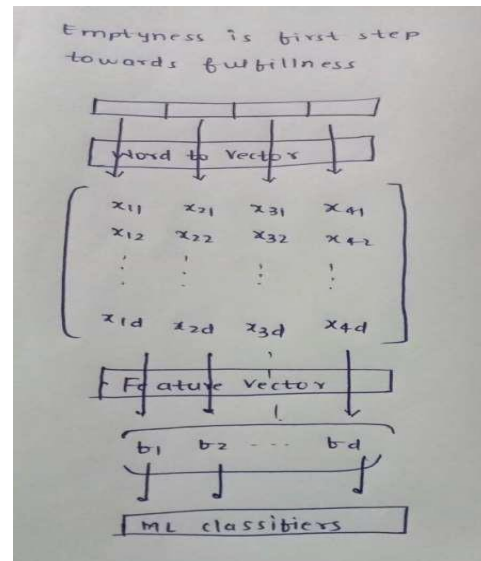 Emptyness is first step
towards fulfillness
Word to Vector
x11 x21 x31 x41
x12 x22 x32 x42
x1d x2d x3d x4d
Feature Vector
b1 b2 ... bd
ML classifiers